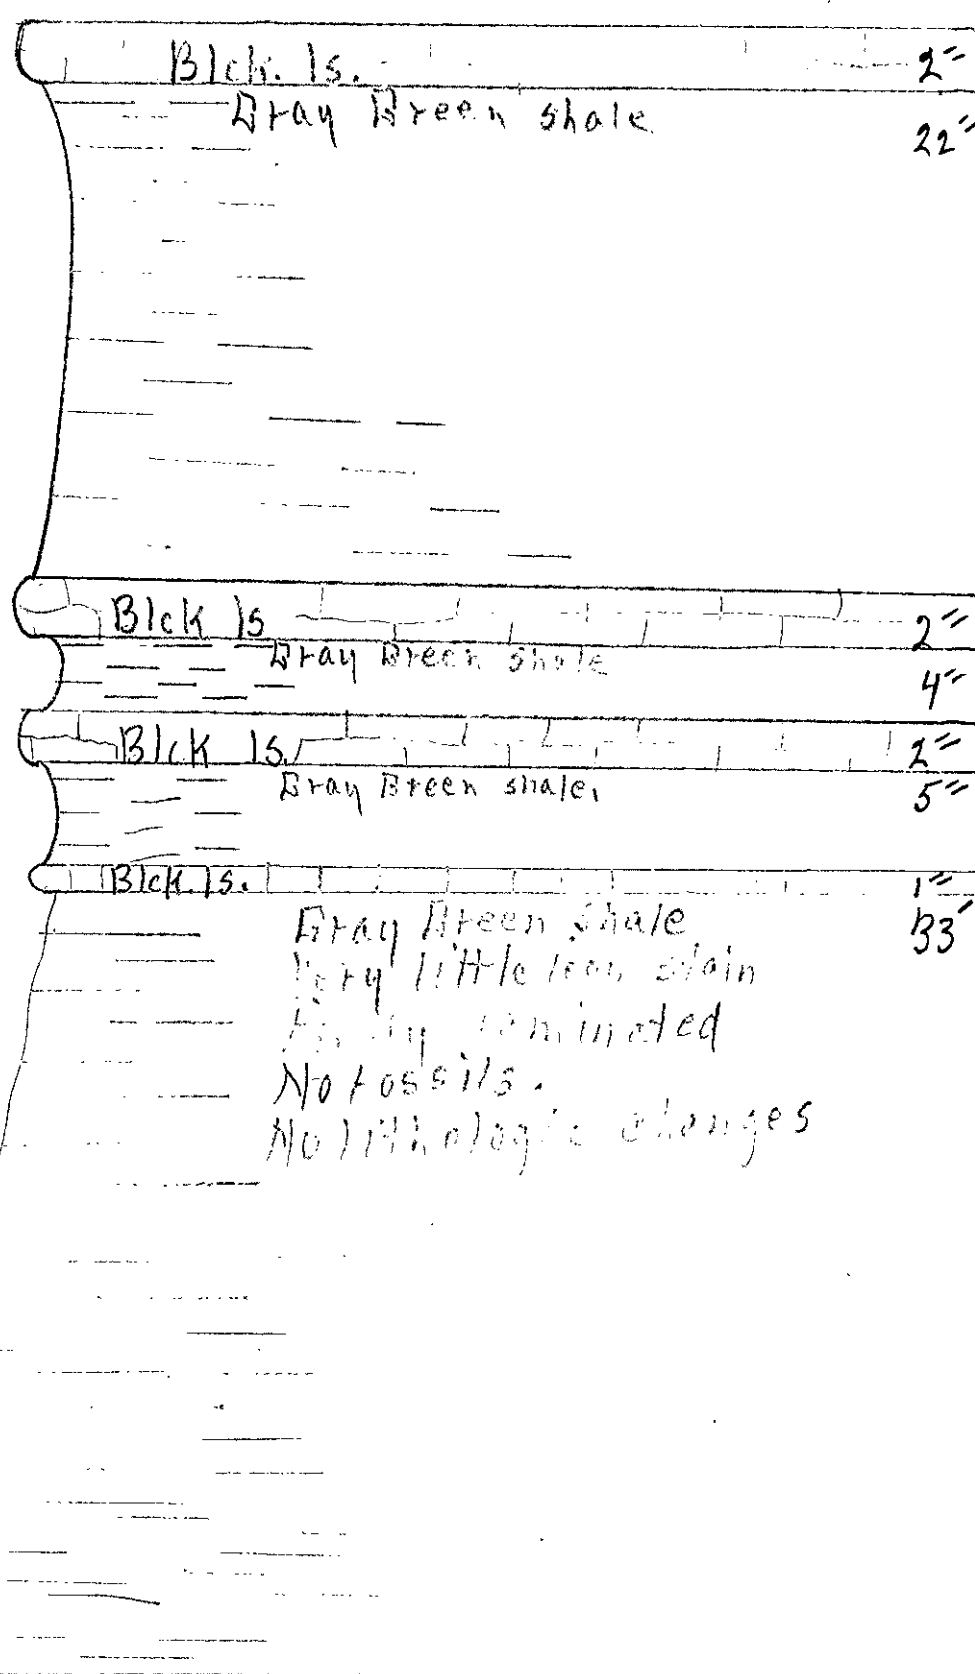 Blck. ls. 2"
Gray Green shale 22"
Blck ls 2"
Gray Green shale 4"
Blck ls. 2"
Gray Green shale. 5"
Blck. ls. 1"
Gray Green shale 33'
Very little iron stain
laminated
No fossils.
No lithologic changes